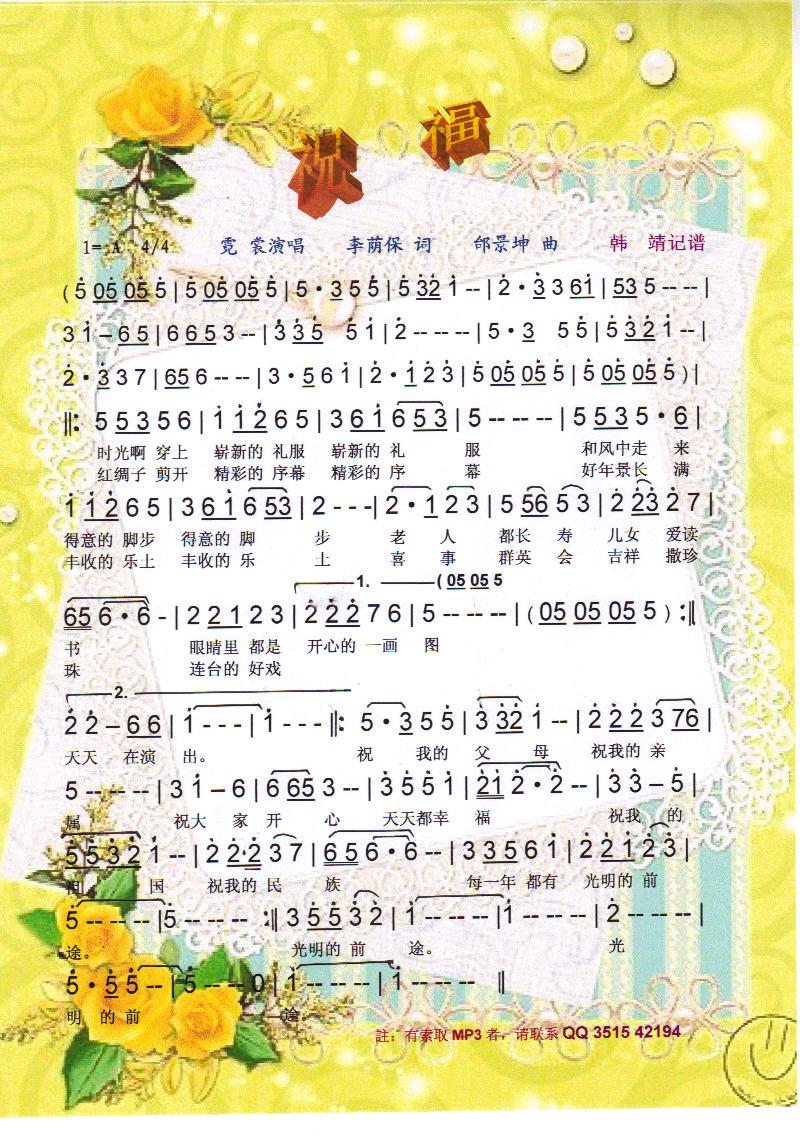 祝 福
1= A 4/4 霓 裳演唱 李荫保 词 邰景坤 曲 韩 靖记谱
(5 05 05 5 | 5 05 05 5 | 5 · 3 5 5 | 5 32 1 -- | 2 · 3 3 61 | 53 5 -- -- |
3 1 – 6 5 | 6 6 5 3 -- | 3 3 5 5 1 | 2 -- -- -- | 5 · 3 5 5 | 5 3 2 1 -- |
2 · 3 3 7 | 65 6 -- -- | 3 · 5 6 1 | 2 · 1 2 3 | 5 05 05 5 | 5 05 05 5 ) |
‖: 5 5 3 5 6 | 1 1 2 6 5 | 3 6 1 6 5 3 | 5 -- -- -- | 5 5 3 5 · 6 |
时光啊 穿上 崭新的 礼服 崭新的 礼 服 和风中走 来
红绸子 剪开 精彩的 序幕 精彩的 序 幕 好年景长 满
1 1 2 6 5 | 3 6 1 6 53 | 2 - - - | 2 · 1 2 3 | 5 56 5 3 | 2 23 2 7 |
得意的 脚步 得意的 脚 步 老 人 都长 寿 儿女 爱读
丰收的 乐土 丰收的 乐 土 喜 事 群英 会 吉祥 撒珍
1. ( 05 05 5
65 6 · 6 - | 2 2 1 2 3 | 2 2 2 7 6 | 5 -- -- -- | ( 05 05 05 5 ) :‖
书 眼睛里 都是 开心的 一画 图
珠 连台的 好戏
2.
2 2 – 6 6 | 1 - - - | 1 - - - ‖: 5 · 3 5 5 | 3 32 1 -- | 2 2 2 3 76 |
天天 在演 出。 祝 我的 父 母 祝我的 亲
5 -- -- -- | 3 1 – 6 | 6 65 3 -- | 3 5 5 1 | 21 2 · 2 -- | 3 3 – 5 |
属 祝大 家 开 心 天天都幸 福 祝我 的
5 5 3 2 1 -- | 2 2 · 2 3 7 | 6 5 6 · 6 -- | 3 3 5 6 1 | 2 2 1 2 3 |
祖 国 祝我的 民 族 每一年 都有 光明的 前
5 -- -- -- | 5 -- -- -- :‖ 3 5 5 3 2 | 1 -- -- -- | 1 -- -- -- | 2 -- -- -- |
途。 光明的 前 途。 光
5 · 5 5 -- | 5 -- -- 0 | 1 -- -- -- | 1 -- -- -- ‖
明 的 前 途。
註：有索取 MP3 者，请联系 QQ 3515 42194